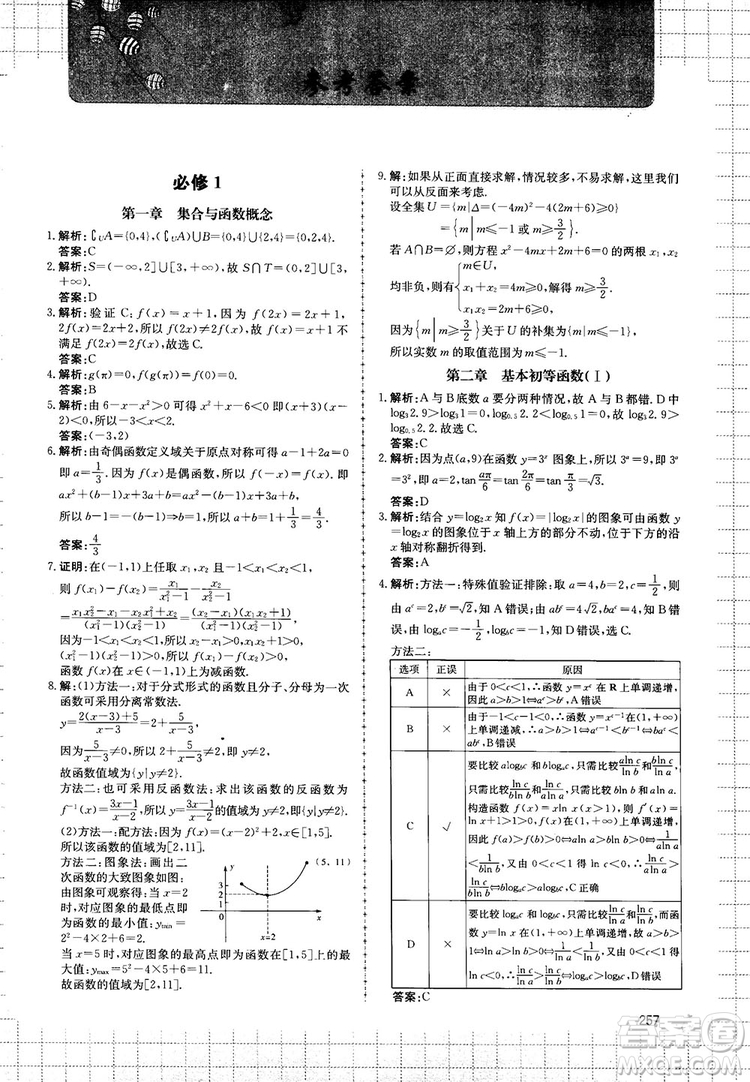 参考答案
必修1
第一章 集合与函数概念
1. 解析:∁UA={0,4},(∁UA)∪B={0,4}∪{2,4}={0,2,4}.
答案:C
2. 解析:S=(-∞,2]∪[3,+∞),故 S∩T=(0,2]∪[3,
+∞).
答案:D
3. 解析:验证 C:f(x)=x+1,因为 f(2x)=2x+1,
2f(x)=2x+2,所以 f(2x)≠2f(x),故 f(x)=x+1 不
满足 f(2x)=2f(x),故选 C.
答案:C
4. 解析:g(π)=0,f(g(π))=f(0)=0.
答案:B
5. 解析:由 6-x-x²>0,得 x²+x-6<0,即(x+3)(x-2)
<0,所以-3<x<2.
答案:(-3,2)
6. 解析:由奇偶函数定义域关于原点对称可得 a-1+2a=0
即 a=1/3,因为 f(x)是偶函数,所以 f(-x)=f(x),即
ax²+(1-b)x+3a+b=ax²+(b-1)x+3a+b,
所以 b-1=1-b⇒b=1,所以 a+b=1/3+1=4/3.
答案:4/3
7. 证明:在(-1,1)上任取 x₁,x₂ 且-1<x₁<x₂<1,
则 f(x₁)-f(x₂)=x₁/(x₁²-1)-x₂/(x₂²-1)
=(x₁x₂²-x₁-x₂x₁²+x₂)/((x₁²-1)(x₂²-1))=(x₂-x₁)(x₁x₂+1)/((x₁²-1)(x₂²-1))
因为-1<x₁<x₂<1,所以 f(x₁)-f(x₂)>0,所以
函数 f(x)在 x∈(-1,1)上为减函数.
8. 解:(1)方法一:对于分式形式的函数且分子、分母为一次
函数可采用分离常数法.
y=(2(x-3)+5)/(x-3)=2+5/(x-3),
因为5/(x-3)≠0,所以 2+5/(x-3)≠2.
故函数的值域为{y|y≠2}.
方法二:也可考虑反函数法:求出该函数的反函数为
f⁻¹(x)=(3x-1)/(x-2),所以 y=(3x-1)/(x-2)的值域为{y|y≠2}.
(2)方法一:配方法:y=(x-2)²+2,因为 x∈[1,5].
所以该函数的值域为[2,11].
方法二:图象法:画出二
次函数的大致图象如图:
由图象可观察得:当 x=2
时,对应图象的最低点即
为函数的最小值:ymin=
2²-4×2+6=2.
y
(5,11)
3
2
1
x
x=2
当 x=5 时,对应图象的最高点即为函数在[1,5]上的最
大值:ymax=5²-4×5+6=11.
故函数的值域为[2,11].
9. 解:如果从正面直接求解,情况较多,不易求解,这里我们
可以从反面来求解.
设全集 U={m|Δ=(-4m)²-4(2m+6)≥0}
={m|m≤-1 或 m≥3/2}.
若 A∩B=∅,则方程 x²-4mx+2m+6=0 的两根 x₁,x₂
均非负,则{m∈U, x₁+x₂=4m≥0, x₁x₂=2m+6≥0 ⇒m≥3/2.
因为{m|m≥3/2}关于 U 的补集为{m|m≤-1},
所以实数 m 的取值范围为 m≤-1.
第二章 基本初等函数(Ⅰ)
1. 解析:A 与 B 底数 a 要分两种情况,故 A 与 B 都错. D 中
log₃2.9>log₃1=0,log₀.₅2.2<log₀.₅1=0,
log₃2.9>log₀.₅2.2,故选 C.
答案:C
2. 解析:因为点(a,9)在函数 y=3ˣ 图象上,所以 3ᵃ=9=
3²,所以 a=2,即 tan aπ/6=tan 2π/6=tan π/3=√3.
答案:D
3. 解析:结合 y=log₂x 知 f(x)=|log₂x|的图象可由函数 y
=log₂x 的图象位于 x 轴上方的部分不动,位于下方的沿
x 轴对称翻折得到.
答案:A
4. 解析:方法一:特殊值验证排除:取 a=4,b=2,c=1/2,所
以 aᶜ=2,bᶜ=√2,故 A 错误;abᶜ=4√2,baᶜ=4,故 B 错
误;而 logₐc=-1/2,log_bc=-1,知 D 错误;故选 C.
方法二:
选项 正误 原因
A × 由于 0<c<1,∴函数 y=xᶜ 在 R 上单调递增,
因此 a>b>1⇔aᶜ>bᶜ,A 错误
B × 由于-1<c-1<0,∴函数 y=xᶜ⁻¹在(1,+∞)
上单调递减,∴a>b>1⇔aᶜ⁻¹<bᶜ⁻¹⇔baᶜ<
abᶜ,B 错误
C √ 要比较 alog_bc 和 blogₐc,只需比较 aln c/ln b 和 bln c/ln a,
只需比较 ln c/(bln b) 和 ln c/(aln a),只需比较 bln b 和 aln a.
构造函数 f(x)=xln x(x>1),则 f′(x)=
ln x+1>1>0,f(x)在(1,+∞)上单调递增,
因此 f(a)>f(b)>0⇔aln a>bln b>0⇔1/(aln a)
<1/(bln b),又由 0<c<1 得 ln c<0,∴ln c/(aln a)>
ln c/(bln b)⇔blogₐc>alog_bc,C 正确
D × 要比较 logₐc 和 log_bc,只需比较 ln c/ln a 和 ln c/ln b,而函
数 y=ln x 在(1,+∞)上单调递增,故 a>b>
1⇔ln a>ln b>0⇔1/ln a<1/ln b,又由 0<c<1
得 ln c<0,∴ln c/ln a>ln c/ln b⇔logₐc>log_bc,D 错误
答案:C
257
答案圈
MXQE.COM